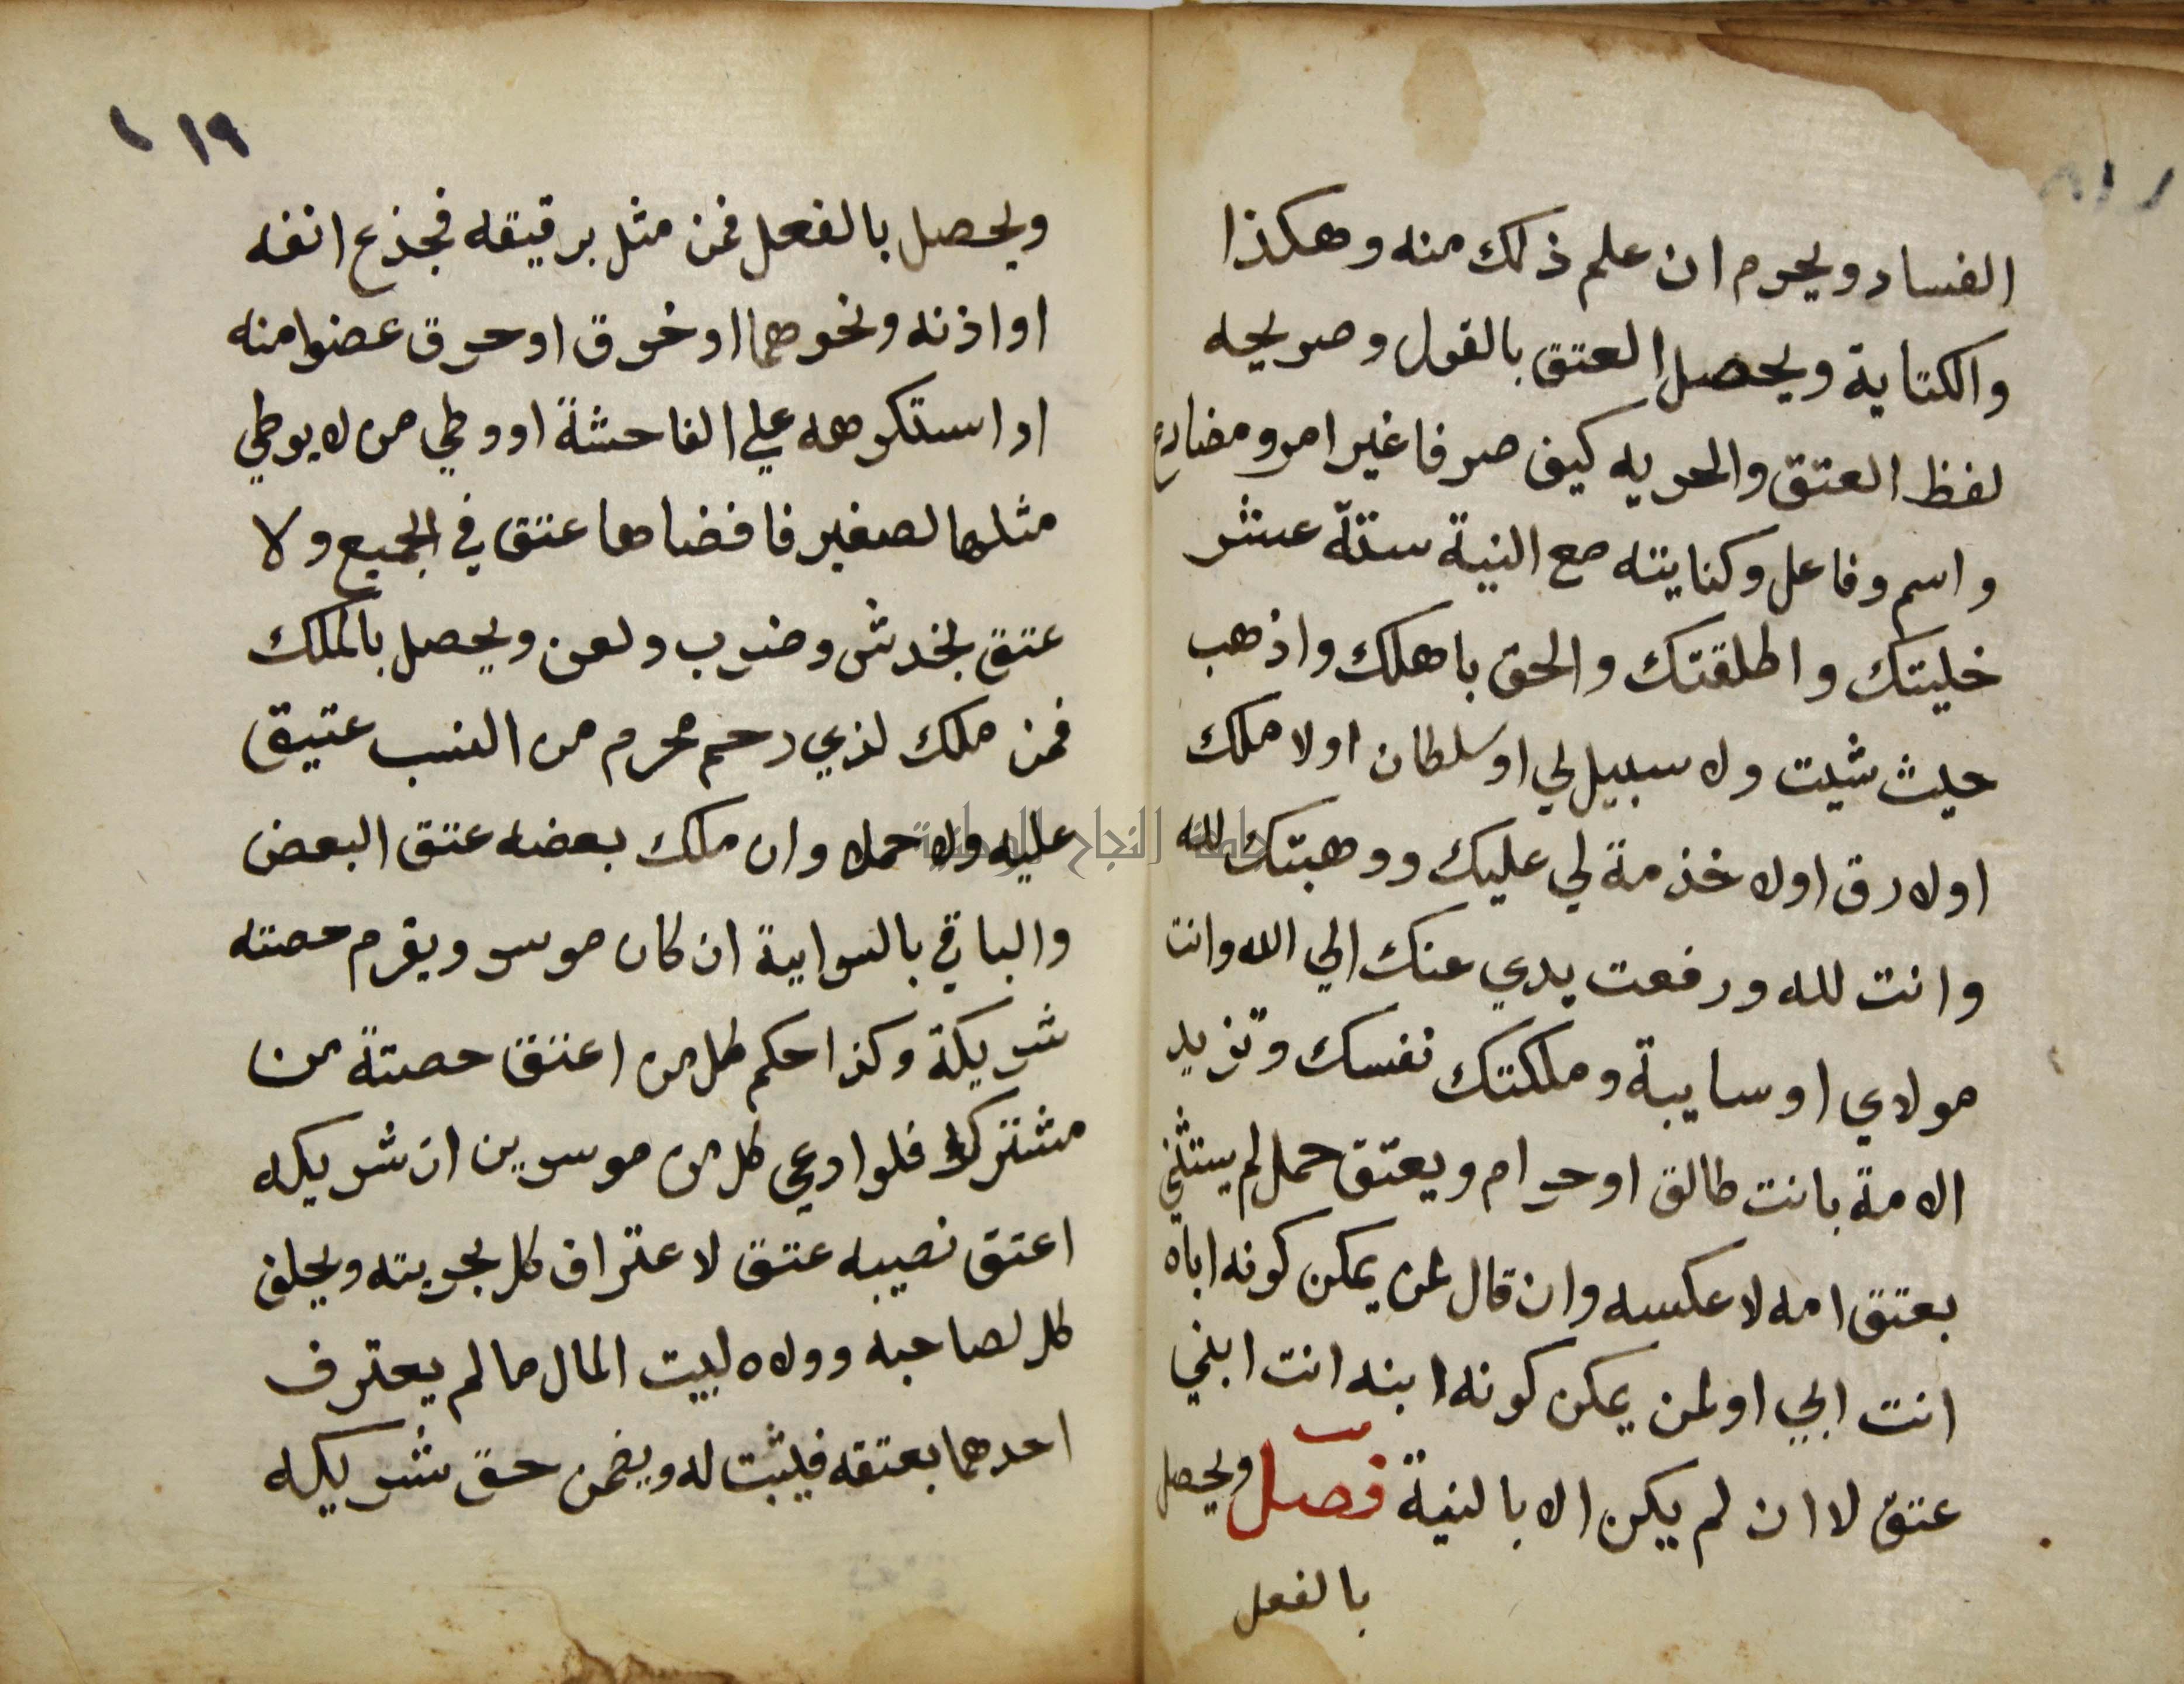 الفساد ويحرم ان علم ذلك منه وهكذا
والكتابة ويحصل العتق بالقول وصريحه
لفظ العتق والحريه كيف صرفا غير امر ومضارع
واسم وفاعل وكنايته مع النية ستة عشر
خليتك واطلقتك والحق باهلك واذهب
حيث شيت ولا سبيل لي او سلطان اولا ملك
اولا رق اولا خذمة لي عليك ووهبتك لله
وانت لله ورفعت يدي عنك الي الله وانت
مولاي او سايبة وملكتك نفسك وتزيد
الامة بانت طالق او حرام ويعتق حمل لم يستثني
بعتق امه لا عكسه وان قال لمن يمكن كونه اباه
انت ابي او لمن يمكن كونه ابنه انت ابني
عتق لا ان لم يكن الا بالنية فصل ويحصل
بالفعل
١١٩
ويحصل بالفعل فمن مثل برقيقه فجذع انفه
او اذنه ونحوهما او خرق او حرق عضوا منه
او استكرهه علي الفاحشة او وطي من لا يوطي
مثلها لصغير فافضاها عتق في الجميع ولا
عتق بخدش وضرب ولعن ويحصل بالملك
فمن ملك لذي رحم محرم من النسب عتيق
عليه ولا حملا وان ملك بعضه عتق البعض
والباقي بالسراية ان كان موسر ويغرم حصته
شريكة وكذا حكم كل من اعتق حصتة من
مشترك فلو ادعي كل من موسرين ان شريكه
اعتق نصيبه عتق لاعتراف كل بحريته ويحلف
كل لصاحبه وولاه لبيت المال ما لم يعترف
احدهما بعتقه فيثبت له ويضمن حق شريكه
جامعة النجاح الوطنية